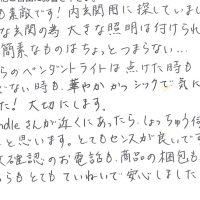 も素敵です！内玄関用に探していまし
な玄関の為 大きな照明は付けられ
簡素なものはちょっとつまらない…
らのペンダントライトは点けた時も
ない時も、華やか かつ シックで 気に
た！大切にします。
ndleさんが近くにあったら、しょっちゅう伺
と思います。とてもセンスが良いです
確認のお電話も、商品の梱包も
らもとてもていねいで安心しました